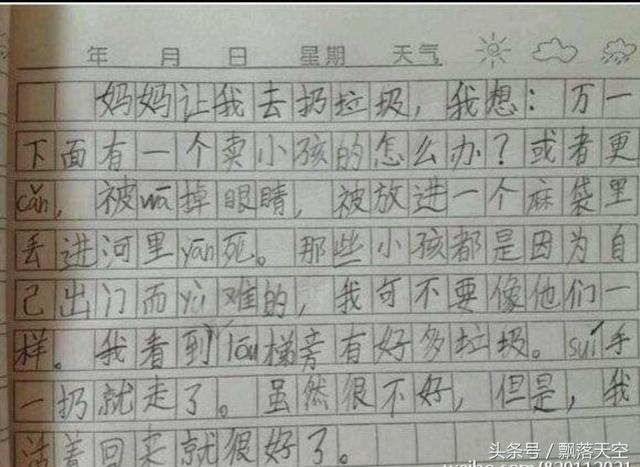 年 月 日 星期 天气
妈妈让我去扔垃圾，我想：万一
下面有一个卖小孩的怎么办？或者更
cǎn，被wā掉眼睛，被放进一个麻袋里
丢进河里yān死。那些小孩都是因为自
己出门而yù难的，我可不要像他们一
样。我看到lóu梯旁有好多垃圾。suí手
一扔就走了。虽然很不好，但是，我
活着回来就很好了。
头条号／飘落天空